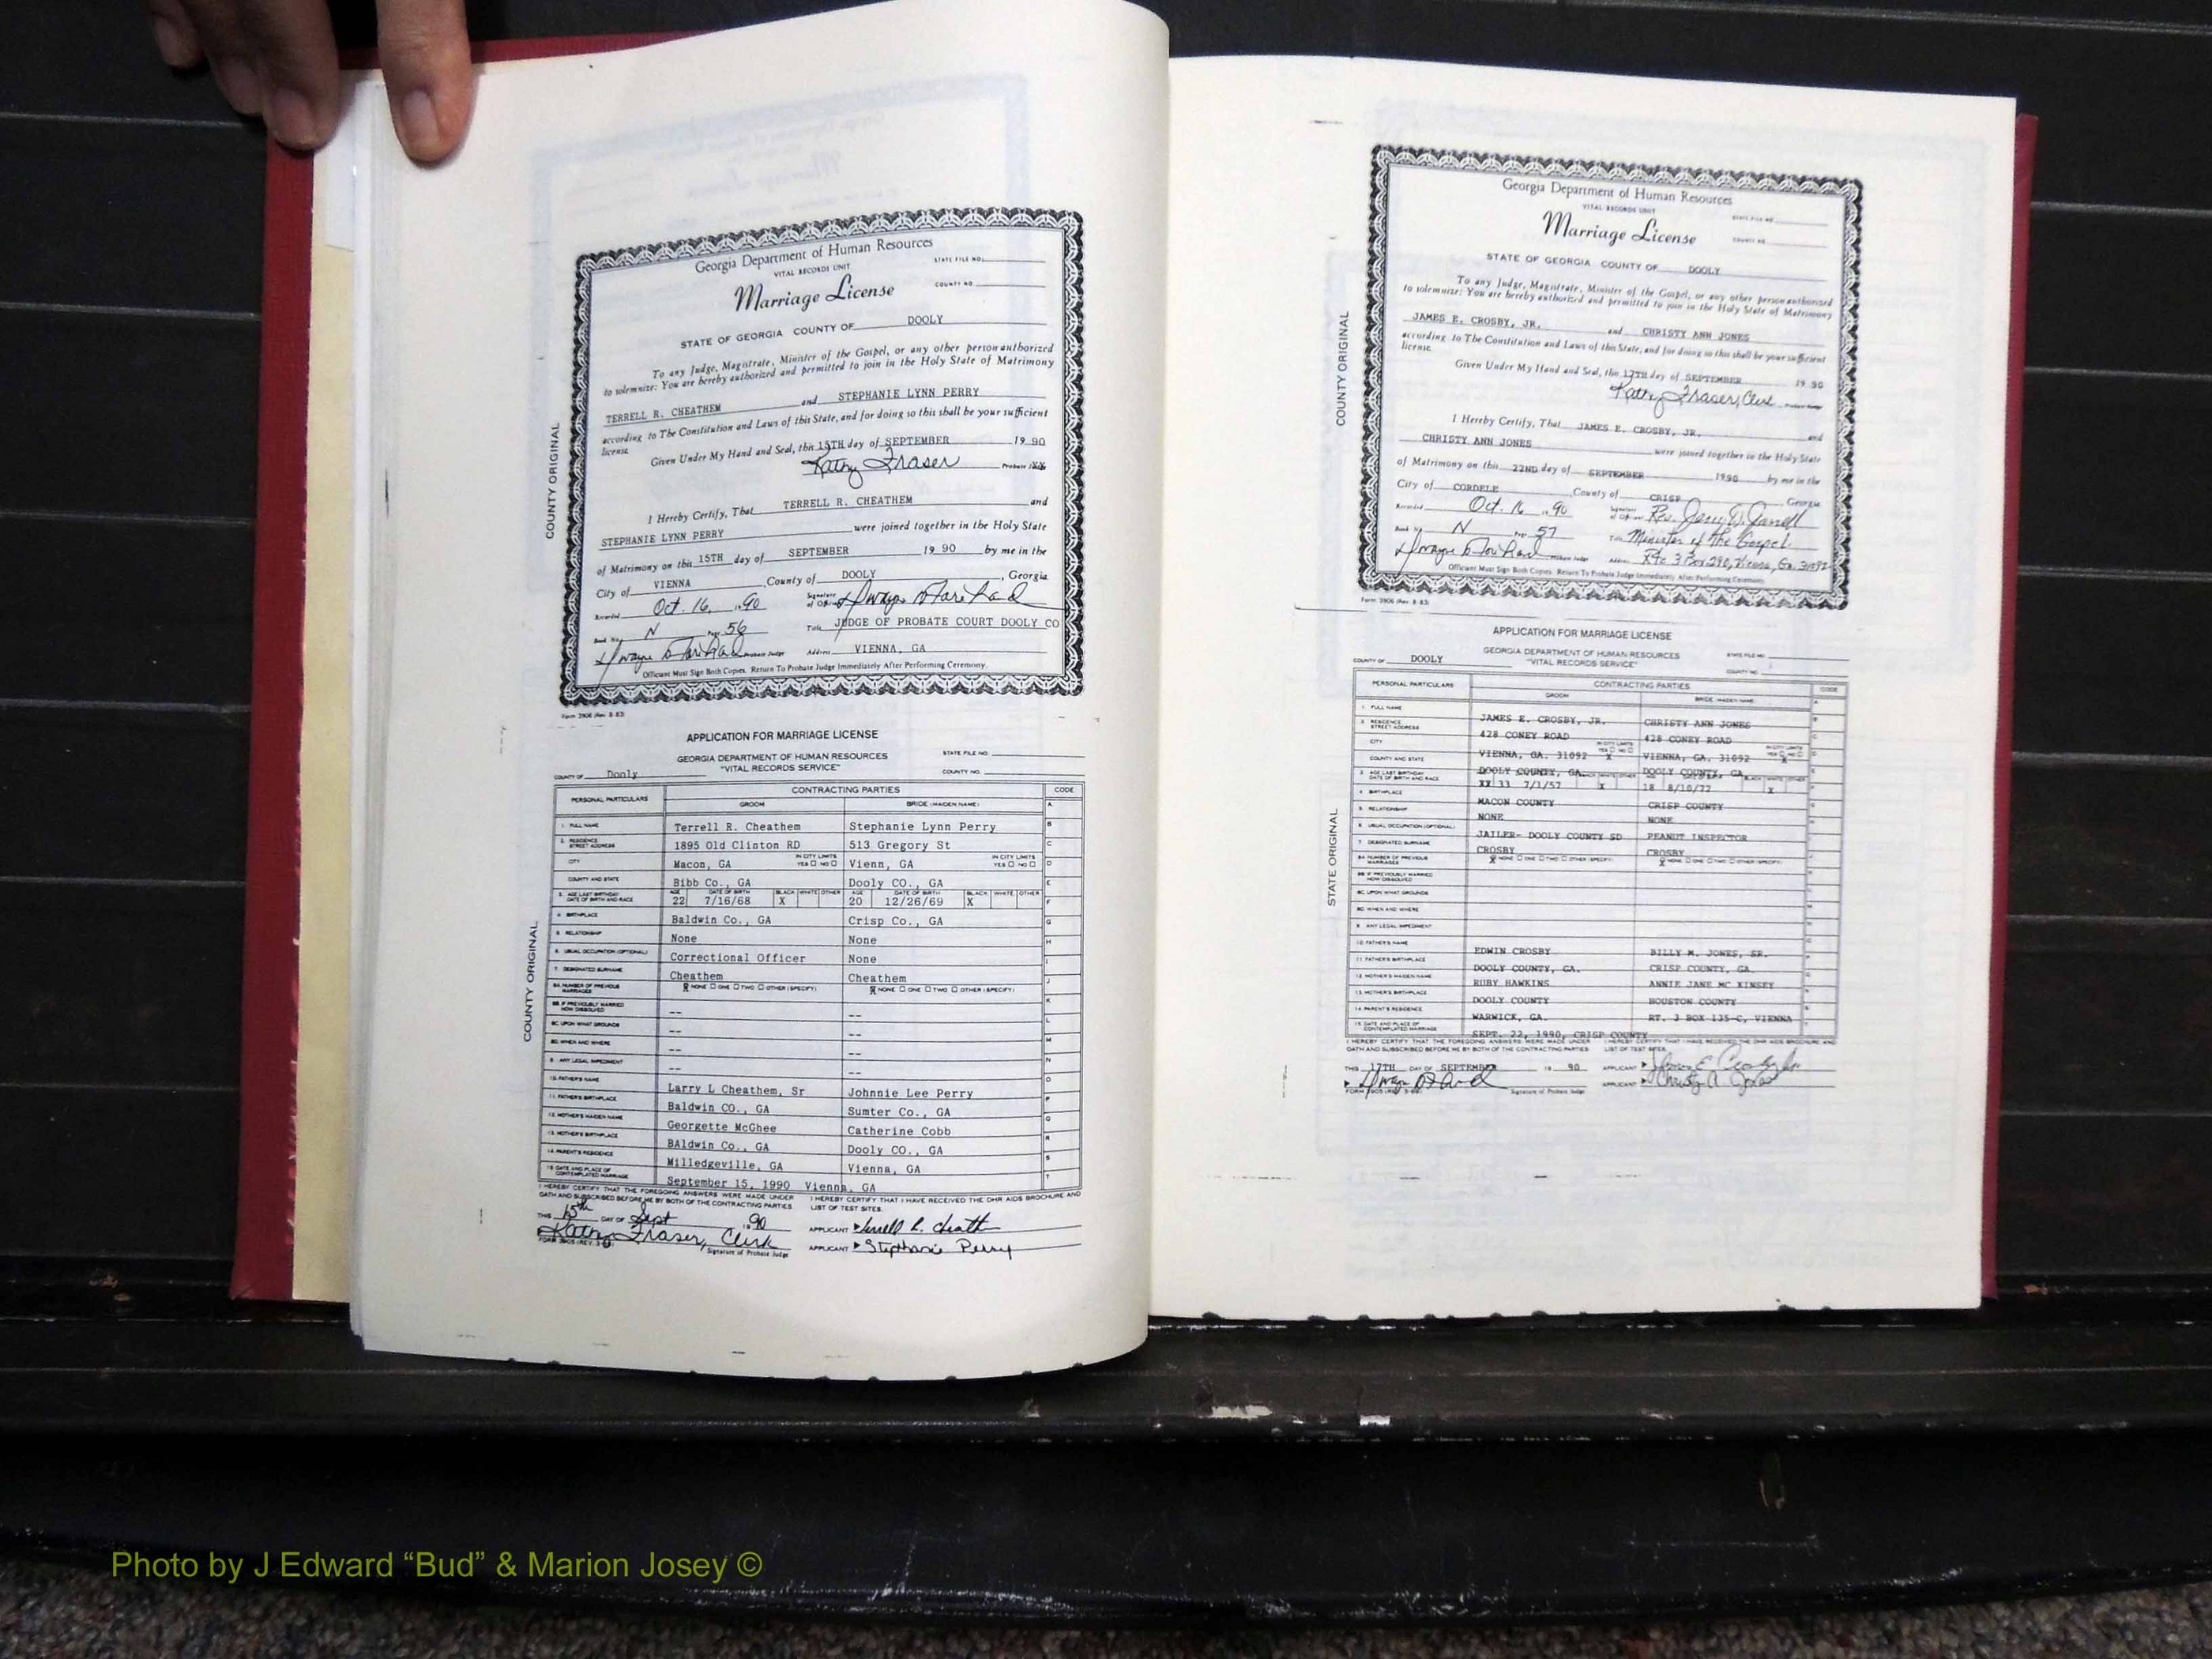 Georgia Department of Human Resources
VITAL RECORDS UNIT
STATE FILE NO.
Marriage License
COUNTY NO.
STATE OF GEORGIA COUNTY OF DOOLY
To any Judge, Magistrate, Minister of the Gospel, or any other person authorized
to solemnize: You are hereby authorized and permitted to join in the Holy State of Matrimony
TERRELL R. CHEATHEM and STEPHANIE LYNN PERRY
according to The Constitution and Laws of this State, and for doing so this shall be your sufficient
license.
Given Under My Hand and Seal, this 15TH day of SEPTEMBER 19 90
Kathy Fraser Probate
I Hereby Certify, That TERRELL R. CHEATHEM and
STEPHANIE LYNN PERRY were joined together in the Holy State
of Matrimony on this 15TH day of SEPTEMBER 19 90 by me in the
City of VIENNA, County of DOOLY, Georgia
Recorded Oct. 16, 1990 Signature of Officiant
Book No. N Page 56 Title JUDGE OF PROBATE COURT DOOLY CO
Probate Judge Address VIENNA, GA
Officiant Must Sign Both Copies. Return To Probate Judge Immediately After Performing Ceremony.
Form 3906 (Rev. 8-83)
COUNTY ORIGINAL
APPLICATION FOR MARRIAGE LICENSE
GEORGIA DEPARTMENT OF HUMAN RESOURCES STATE FILE NO.
"VITAL RECORDS SERVICE" COUNTY NO.
COUNTY OF Dooly
PERSONAL PARTICULARS CONTRACTING PARTIES CODE
GROOM BRIDE (MAIDEN NAME)
1. FULL NAME Terrell R. Cheathem Stephanie Lynn Perry
2. RESIDENCE STREET ADDRESS 1895 Old Clinton RD 513 Gregory St
CITY Macon, GA IN CITY LIMITS YES NO Vienn, GA IN CITY LIMITS YES NO
COUNTY AND STATE Bibb Co., GA Dooly CO., GA
3. AGE LAST BIRTHDAY DATE OF BIRTH AND RACE AGE 22 DATE OF BIRTH 7/16/68 BLACK X WHITE OTHER AGE 20 DATE OF BIRTH 12/26/69 BLACK X WHITE OTHER
4. BIRTHPLACE Baldwin Co., GA Crisp Co., GA
5. RELATIONSHIP None None
6. USUAL OCCUPATION (OPTIONAL) Correctional Officer None
7. DESIGNATED SURNAME Cheathem Cheathem
8A. NUMBER OF PREVIOUS MARRIAGES X NONE ONE TWO OTHER (SPECIFY) X NONE ONE TWO OTHER (SPECIFY)
8B. IF PREVIOUSLY MARRIED HOW DISSOLVED -- --
8C. UPON WHAT GROUNDS -- --
8D. WHEN AND WHERE -- --
9. ANY LEGAL IMPEDIMENT -- --
10. FATHER'S NAME Larry L Cheathem, Sr Johnnie Lee Perry
11. FATHER'S BIRTHPLACE Baldwin CO., GA Sumter Co., GA
12. MOTHER'S MAIDEN NAME Georgette McGhee Catherine Cobb
13. MOTHER'S BIRTHPLACE BAldwin Co., GA Dooly CO., GA
14. PARENT'S RESIDENCE Milledgeville, GA Vienna, GA
15. DATE AND PLACE OF CONTEMPLATED MARRIAGE September 15, 1990 Vienna, GA
I HEREBY CERTIFY THAT THE FOREGOING ANSWERS WERE MADE UNDER OATH AND SUBSCRIBED BEFORE ME BY BOTH OF THE CONTRACTING PARTIES.
I HEREBY CERTIFY THAT I HAVE RECEIVED THE DHR AIDS BROCHURE AND LIST OF TEST SITES.
THIS 15th DAY OF Sept 19 90 APPLICANT Terrell R. Cheath
Kathy Fraser, Clerk Signature of Probate Judge APPLICANT Stephanie Perry
COUNTY ORIGINAL
Georgia Department of Human Resources
VITAL RECORDS UNIT
STATE FILE NO.
Marriage License
COUNTY NO.
STATE OF GEORGIA COUNTY OF DOOLY
To any Judge, Magistrate, Minister of the Gospel, or any other person authorized
to solemnize: You are hereby authorized and permitted to join in the Holy State of Matrimony
JAMES E. CROSBY, JR. and CHRISTY ANN JONES
according to The Constitution and Laws of this State, and for doing so this shall be your sufficient
license.
Given Under My Hand and Seal, this 17TH day of SEPTEMBER 19 90
Kathy Fraser, Clerk Probate Judge
I Hereby Certify, That JAMES E. CROSBY, JR. and
CHRISTY ANN JONES were joined together in the Holy State
of Matrimony on this 22ND day of SEPTEMBER 1990 by me in the
City of CORDELE, County of CRISP, Georgia
Recorded Oct. 16, 90 Signature of Officiant Rev. Jerry D.
Book No. N Page 57 Title Minister of the Gospel
Probate Judge Address Rte 3 Box 290, Vienna, Ga. 31092
Officiant Must Sign Both Copies. Return To Probate Judge Immediately After Performing Ceremony.
Form 3906 (Rev. 8-83)
COUNTY ORIGINAL
APPLICATION FOR MARRIAGE LICENSE
GEORGIA DEPARTMENT OF HUMAN RESOURCES STATE FILE NO.
COUNTY OF DOOLY "VITAL RECORDS SERVICE" COUNTY NO.
PERSONAL PARTICULARS CONTRACTING PARTIES CODE
GROOM BRIDE (MAIDEN NAME)
1. FULL NAME JAMES E. CROSBY, JR. CHRISTY ANN JONES
2. RESIDENCE STREET ADDRESS 428 CONEY ROAD 428 CONEY ROAD
CITY VIENNA, GA. 31092 IN CITY LIMITS YES X NO VIENNA, GA. 31092 IN CITY LIMITS YES X NO
COUNTY AND STATE DOOLY COUNTY, GA. DOOLY COUNTY, GA
3. AGE LAST BIRTHDAY DATE OF BIRTH AND RACE XX 33 7/1/57 X 18 8/10/72 X
4. BIRTHPLACE MACON COUNTY CRISP COUNTY
5. RELATIONSHIP NONE NONE
6. USUAL OCCUPATION (OPTIONAL) JAILER- DOOLY COUNTY SD PEANUT INSPECTOR
7. DESIGNATED SURNAME CROSBY CROSBY
8A. NUMBER OF PREVIOUS MARRIAGES X NONE ONE TWO OTHER (SPECIFY) X NONE ONE TWO OTHER (SPECIFY)
8B. IF PREVIOUSLY MARRIED HOW DISSOLVED
8C. UPON WHAT GROUNDS
8D. WHEN AND WHERE
9. ANY LEGAL IMPEDIMENT
10. FATHER'S NAME EDWIN CROSBY BILLY M. JONES, SR.
11. FATHER'S BIRTHPLACE DOOLY COUNTY, GA. CRISP COUNTY, GA.
12. MOTHER'S MAIDEN NAME RUBY HAWKINS ANNIE JANE MC KINSEY
13. MOTHER'S BIRTHPLACE DOOLY COUNTY HOUSTON COUNTY
14. PARENT'S RESIDENCE WARWICK, GA. RT. 3 BOX 135-C, VIENNA
15. DATE AND PLACE OF CONTEMPLATED MARRIAGE SEPT. 22, 1990, CRISP COUNTY
I HEREBY CERTIFY THAT THE FOREGOING ANSWERS WERE MADE UNDER OATH AND SUBSCRIBED BEFORE ME BY BOTH OF THE CONTRACTING PARTIES
I HEREBY CERTIFY THAT I HAVE RECEIVED THE DHR AIDS BROCHURE AND LIST OF TEST SITES.
THIS 17TH DAY OF SEPTEMBER 19 90 APPLICANT James E. Crosby Jr
Signature of Probate Judge APPLICANT Christy A. Jones
STATE ORIGINAL
Photo by J Edward “Bud” & Marion Josey ©